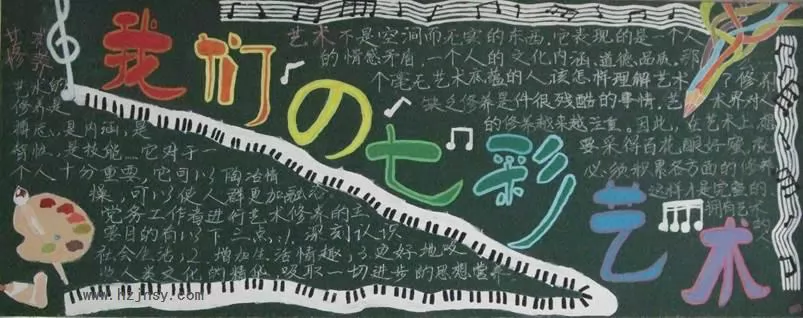 我们の七彩艺术
艺术不是空洞而无实的东西，它表现的是一个人
的情感矛盾，一个人的文化内涵、道德品质，那
个毫无艺术底蕴的人，该怎样理解艺术
了修养
缺乏修养是件很残酷的事情，艺术界对人
的修养越来越注重。因此，在艺术上想
要采得百花酿好蜜，就
必须积累各方面的修养
这样才是完整的
拥有艺术
的人
艺术
修养
艺术的
修养是
情感，是内涵，是
智慧，是技能……它对于一
个人十分重要，它可以陶冶情
操，可以使人群更加融洽。
党务工作者进行艺术修养的主
要目的有以下三点：1、深刻认识
社会生活；2、增加生活情趣；3、更好地吸
收人类文化的精华，吸取一切进步的思想营养
www.hzjnsy.com